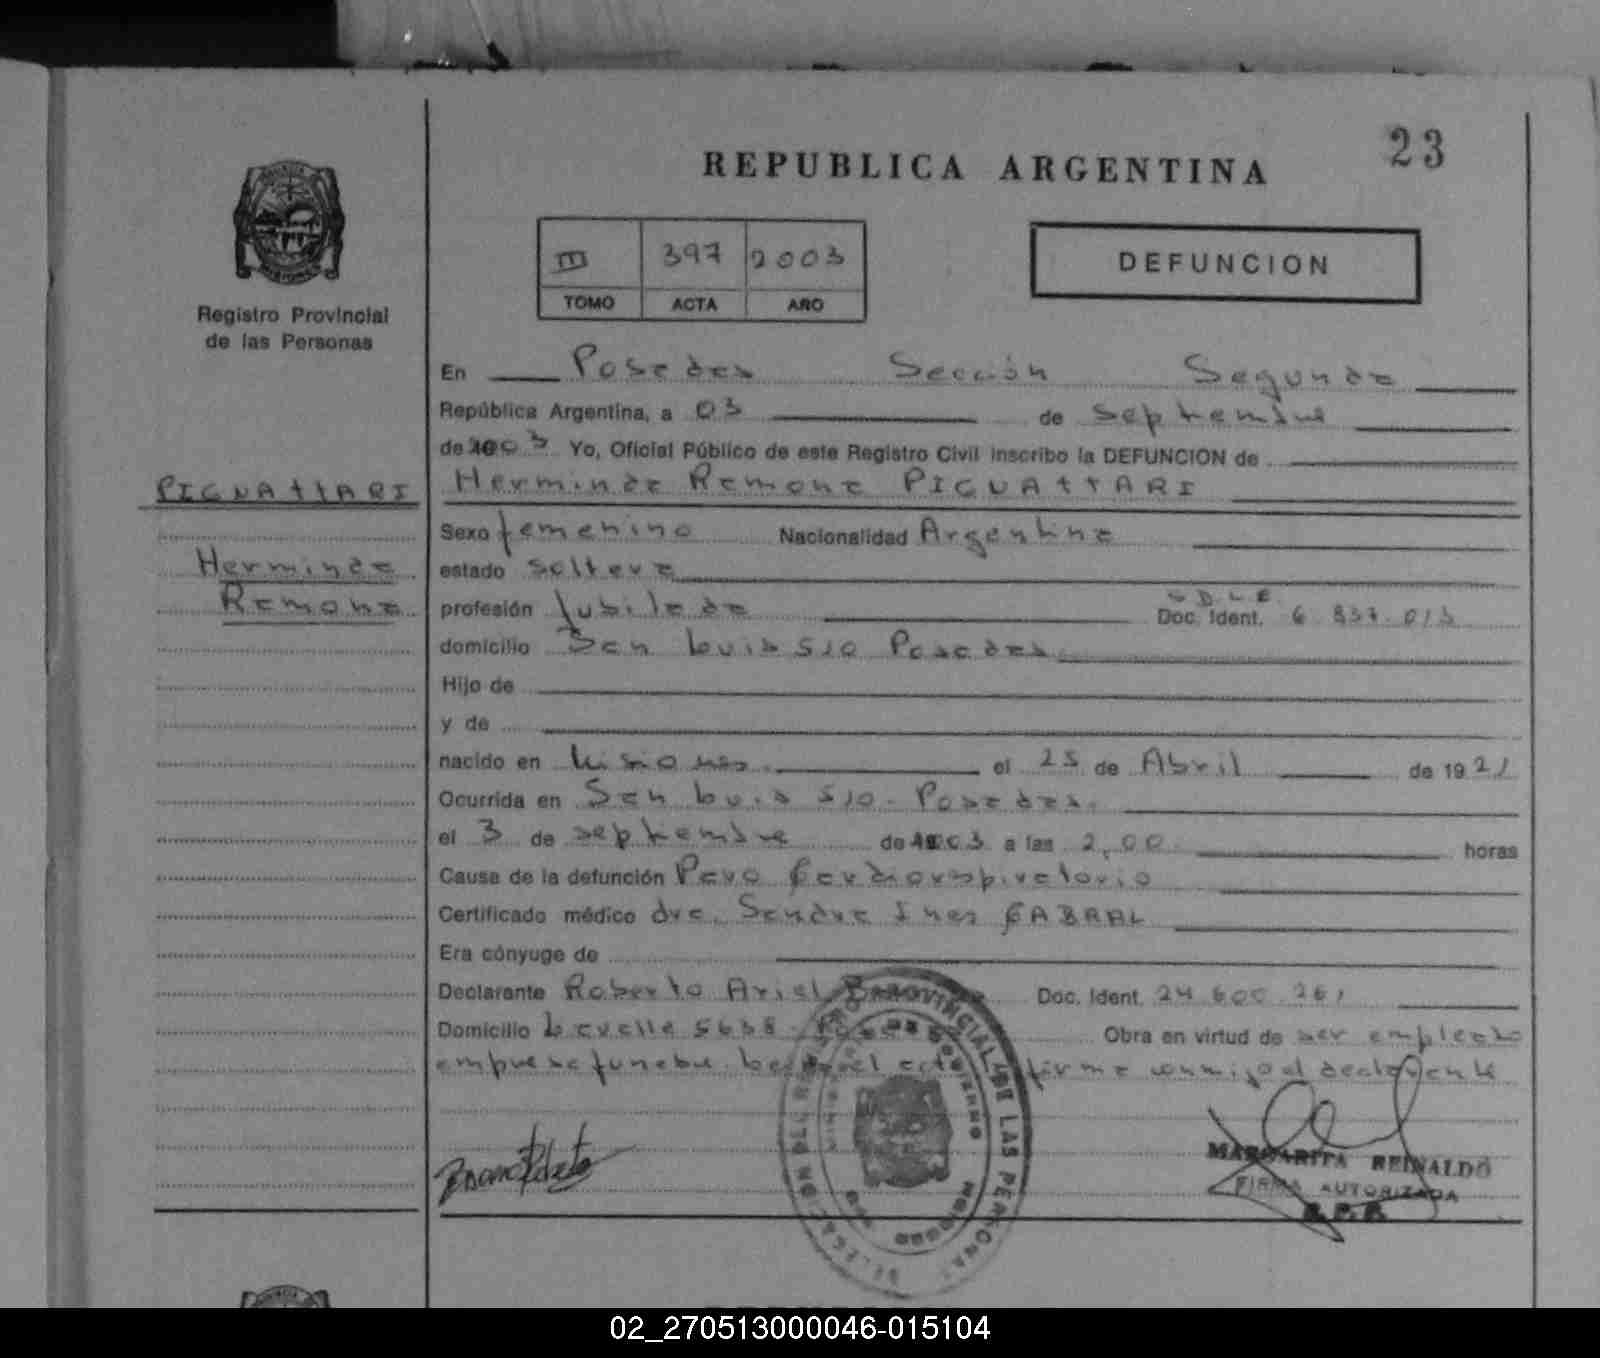 23
REPUBLICA ARGENTINA
III 397 2003
TOMO ACTA AÑO
DEFUNCION
Registro Provincial
de las Personas
PIGNATTARI
Herminda
Ramona
En Posadas Sección Segunda
República Argentina, a 03 de septiembre
de 2003 Yo, Oficial Público de este Registro Civil inscribo la DEFUNCION de
Herminda Ramona PIGNATTARI
Sexo femenino Nacionalidad Argentina
estado soltera
profesión Jubilada Doc. Ident. 6.837.013
domicilio San Luis 510 Posadas
Hijo de
y de
nacido en Misiones el 25 de Abril de 1921
Ocurrida en San Luis 510 - Posadas.
el 3 de septiembre de 2003 a las 2,00 horas
Causa de la defunción Paro Cardiorespiratorio
Certificado médico dra. Sandra Ines CABRAL
Era cónyuge de
Declarante Roberto Ariel Doc. Ident. 24.600.261
Domicilio Lavalle 5638 Obra en virtud de ser empleado
empresa funebre. el acta firma conmigo el declarante
DELEGACION DEL REGISTRO PROVINCIAL DE LAS PERSONAS
MARGARITA REINALDO
FIRMA AUTORIZADA
R.P.P.
02_270513000046-015104